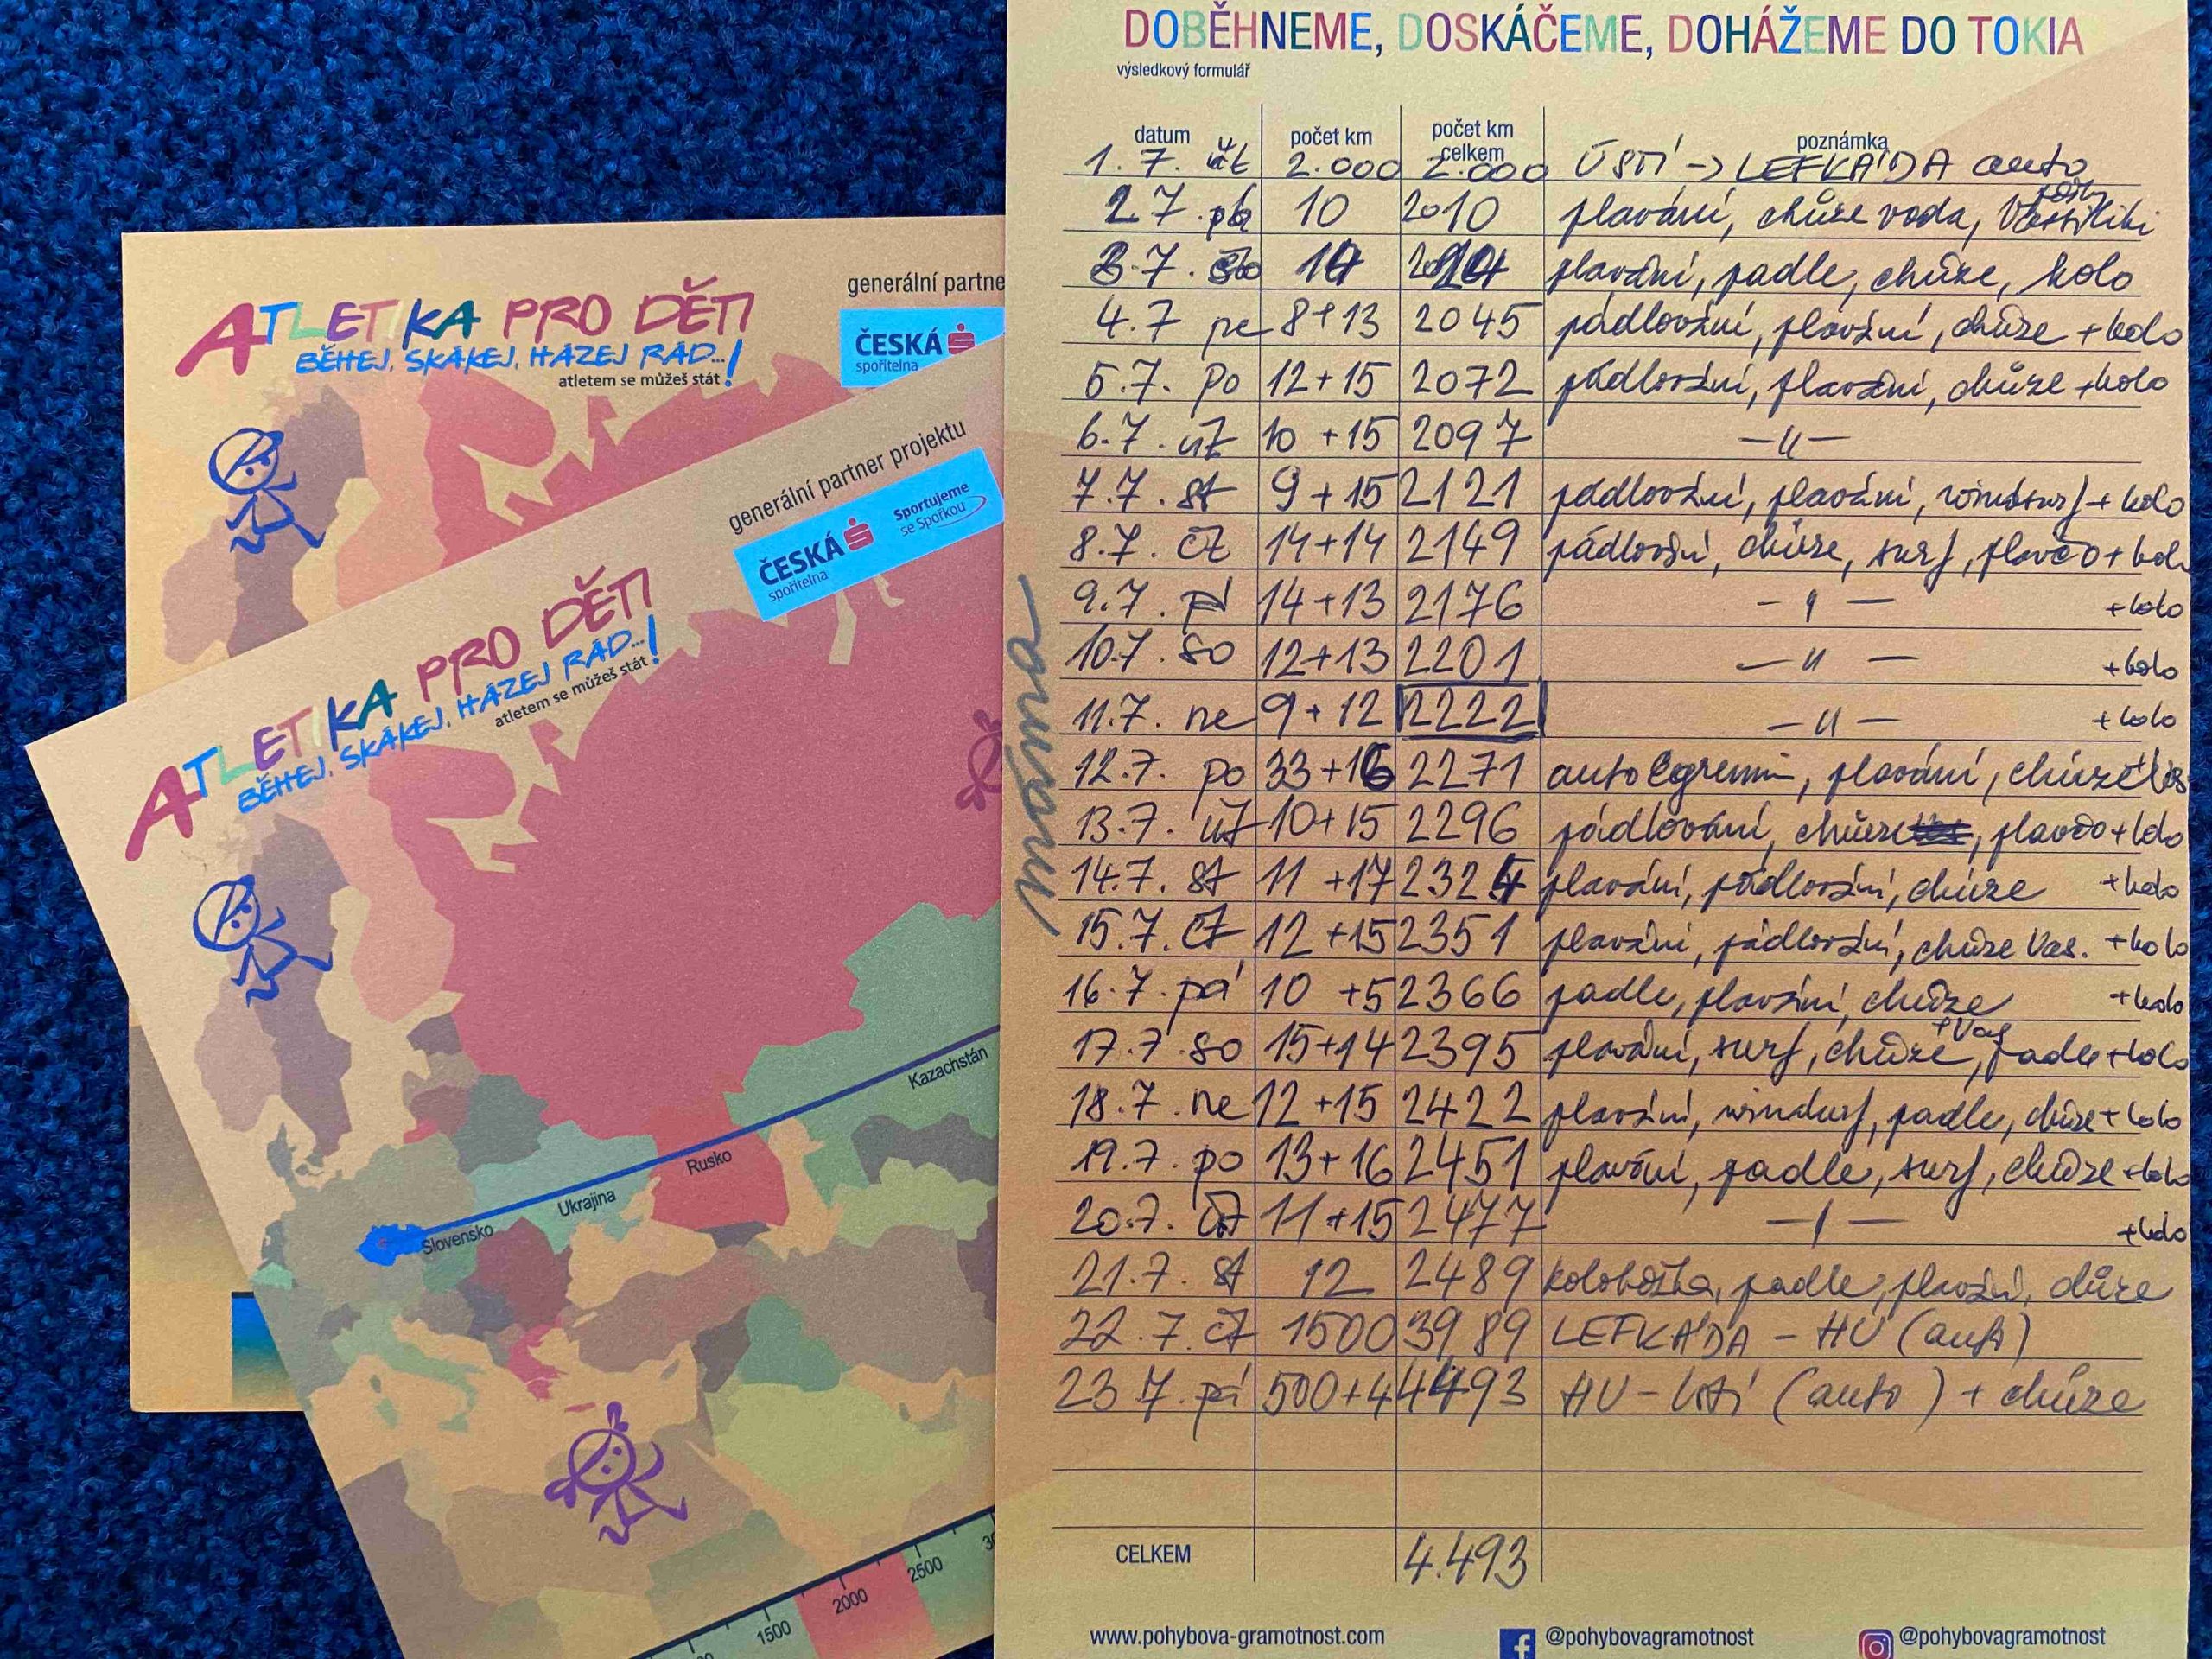 generální partne
ATLETIKA PRO DĚTI
BĚHEJ, SKÁKEJ, HÁZEJ RÁD...!
atletem se můžeš stát
ČESKÁ
spořitelna
generální partner projektu
ČESKÁ
spořitelna
Sportujeme
se Spořkou
ATLETIKA PRO DĚTI
BĚHEJ, SKÁKEJ, HÁZEJ RÁD...!
atletem se můžeš stát
Kazachstán
Rusko
Ukrajina
Slovensko
1500 2000 2500
DOBĚHNEME, DOSKÁČEME, DOHÁŽEME DO TOKIA
výsledkový formulář
datum počet km počet km celkem poznámka
1. 7. čt 2.000 2.000 ÚSTÍ -> LEFKÁDA auto
2 7. pá 10 2010 plavání, chůze voda, Vassiliki
3.7. so 14 2024 plavání, padle, chůze, kolo
4.7 ne 8+13 2045 pádlování, plavání, chůze +kolo
5.7. po 12+15 2072 pádlování, plavání, chůze +kolo
6.7. út 10 +15 2097 —"—
7.7. st 9 + 15 2121 pádlování, plavání, windsurf + kolo
8.7. čt 14+14 2149 pádlování, chůze, surf, plavčo + kolo
9.7. pá 14+13 2176 —"— +kolo
10.7. so 12+13 2201 —"— +kolo
11.7. ne 9+12 2222 —"— +kolo
12.7. po 33+16 2271 auto Egremni, plavání, chůze
13.7. út 10+15 2296 pádlování, chůze, plavčo + kolo
14.7. st 11 +17 2324 plavání, pádlování, chůze +kolo
15.7. čt 12 +15 2351 plavání, pádlování, chůze Vas. +kolo
16.7. pá 10 +5 2366 padle, plavání, chůze +kolo
17.7. so 15+14 2395 plavání, surf, chůze +Vas, padle +kolo
18.7. ne 12 +15 2422 plavání, windsurf, padle, chůze + kolo
19.7. po 13+16 2451 plavání, padle, surf, chůze +kolo
20.7. út 11+15 2477 —"— +kolo
21.7. st 12 2489 koloběžka, padle, plavání, chůze
22.7. čt 1500 3989 LEFKÁDA - HU (auto)
23 7. pá 500+4 4493 HU - Ústí (auto) + chůze
CELKEM 4.493
www.pohybova-gramotnost.com @pohybovagramotnost @pohybovagramotnost